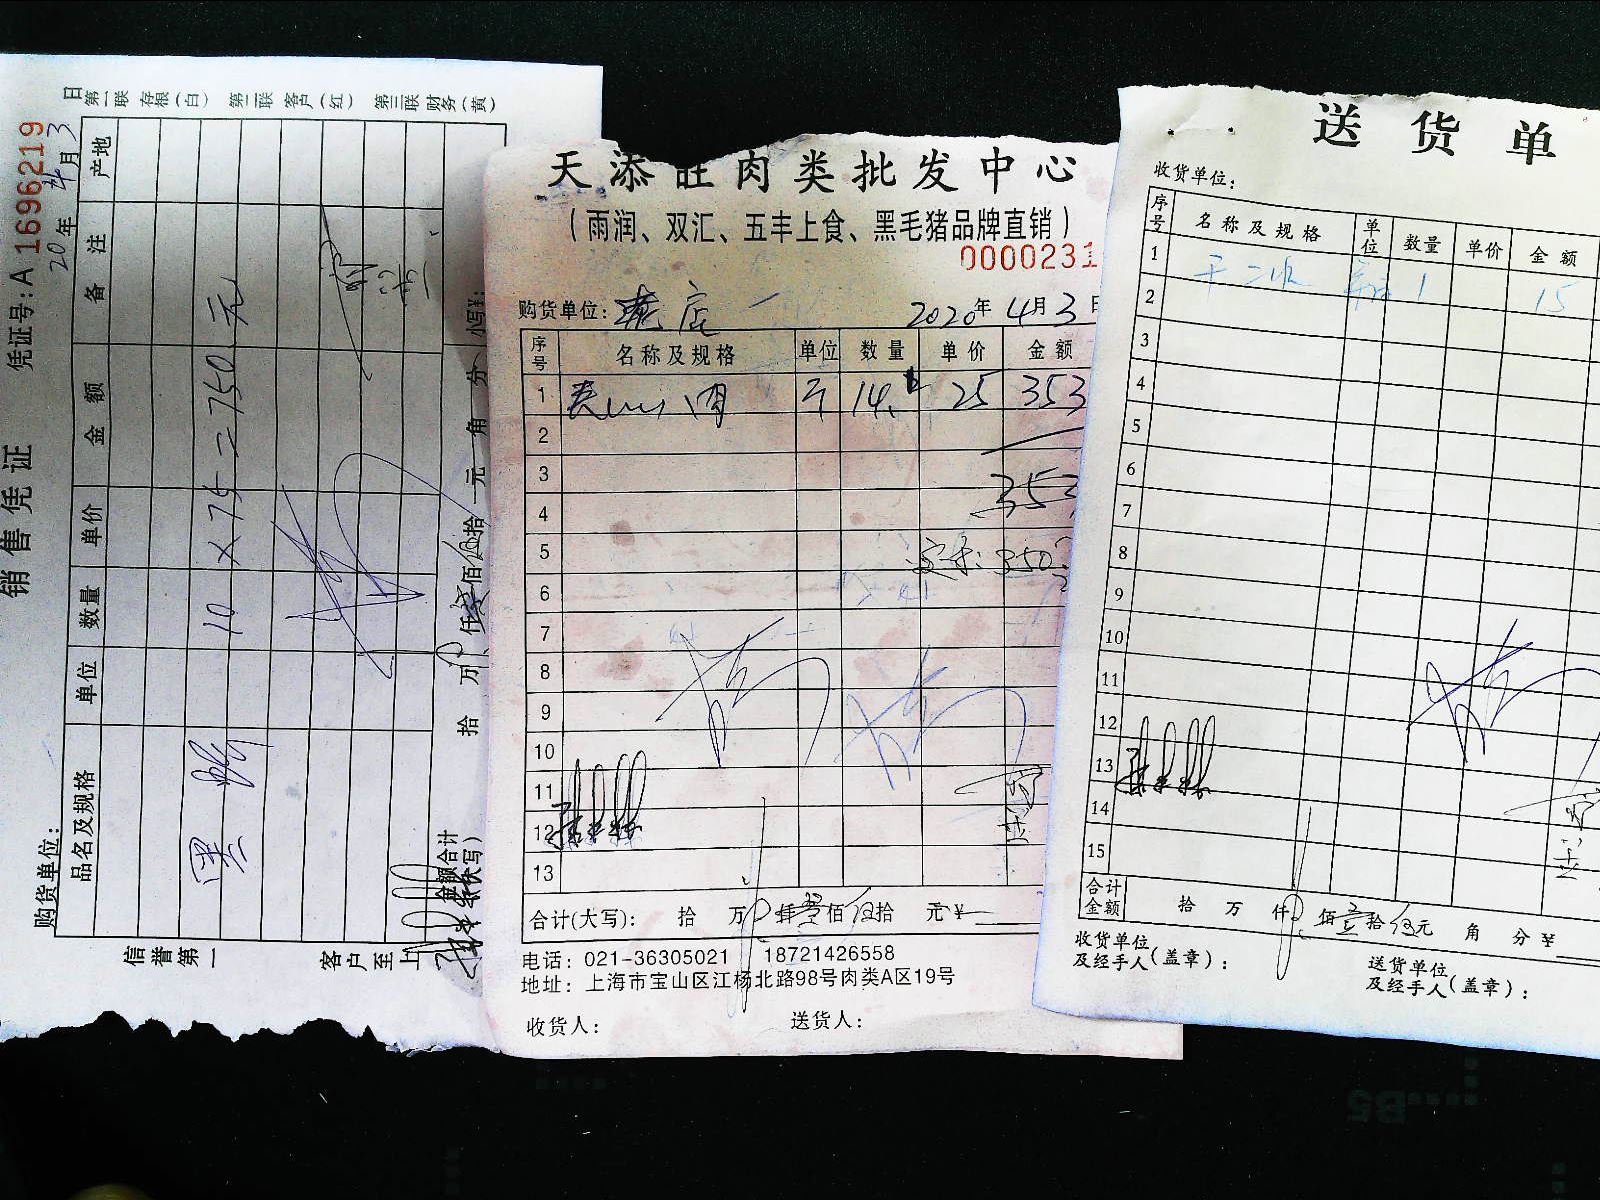 销售凭证
凭证号：A 1696219
20 年 4 月 3 日
第一联 存根（白） 第二联 客户（红） 第三联 财务（黄）
购货单位：
品名及规格 单位 数量 单价 金额 备注 产地
黑 10 × 75 = 750元
金额合计（大写） 拾 万 仟 佰 拾 元 角 分 小写¥：
信誉第一 客户至上
天添旺肉类批发中心
（雨润、双汇、五丰上食、黑毛猪品牌直销）
0000231
购货单位： 店 2020年 4月 3日
序号 名称及规格 单位 数量 单价 金额
1 肉 斤 14. 25 353
2
3
4 353
5 350
6
7
8
9
10
11
12
13
合计(大写)： 拾 万 仟叁佰伍拾 元 ¥
电话：021-36305021 18721426558
地址：上海市宝山区江杨北路98号肉类A区19号
收货人： 送货人：
送货单
收货单位：
序号 名称及规格 单位 数量 单价 金额
1 干 1 15
2
3
4
5
6
7
8
9
10
11
12
13
14
15
合计金额 拾 万 仟 佰壹拾伍元 角 分 ¥
收货单位及经手人(盖章)：
送货单位及经手人(盖章)：